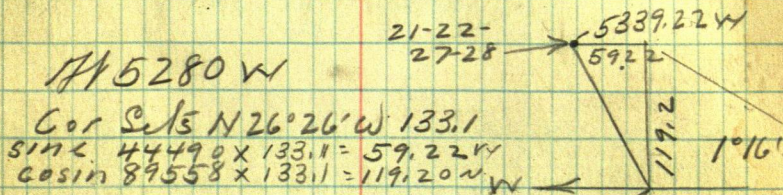 21-22-
27-28
5339.22 W
59.22
At 5280 W
119.2
1°16'
Cor Sets N 26°26' W 133.1
sine 44490 x 133.1 = 59.22 W
cosin 89558 x 133.1 = 119.20 N
W